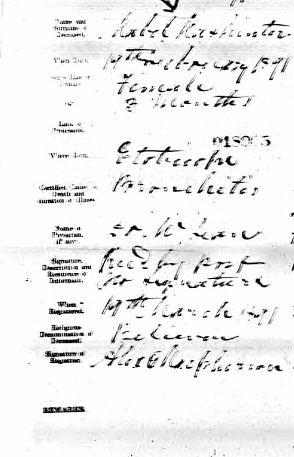 Name and
Surname of
Deceased.
Mabel
When Died.
19th February 1891
Female
Age.
2 Months
Rank or
Profession.
018985
Where Born.
Etobicoke
Certified Cause of
Death and
Duration of Illness.
Bronchitis
Name of
Physician,
if any.
Dr. McLean
Signature,
Description and
Residence of
Informant.
Rec'd by post
No signature
When
Registered.
19th March 1891
Religious
Denomination of
Deceased.
Signature of
Registrar.
Alex Macpherson
REMARKS.